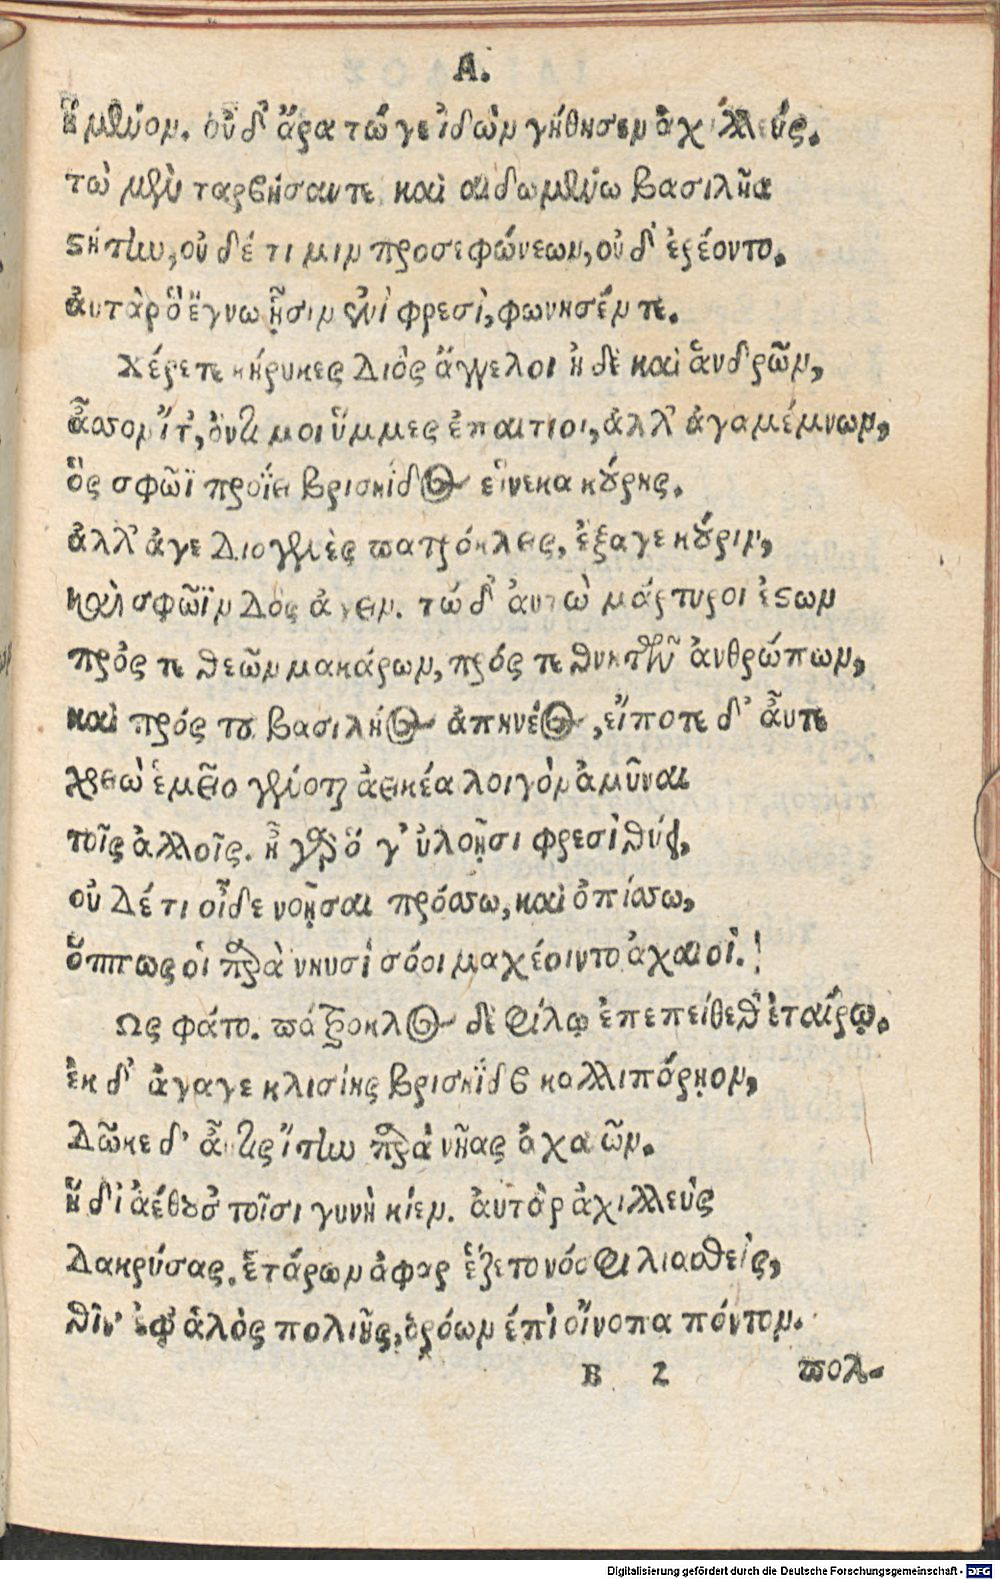 Α.
ἥμενον. οὐδ' ἄρα τώ γε ἰδὼν γήθησεν ἀχιλλεύς.
τὼ μὲν ταρβήσαντε καὶ αἰδομένω βασιλῆα
στήτην, οὐδέ τι μιν προσεφώνεων, οὐδ' ἐρέοντο.
ἀυτὰρ ὃ ἔγνω ᾗσιν ἐνὶ φρεσὶ, φωνησέν τε.
Χέρετε κήρυκες Διὸς ἄγγελοι ἠδὲ καὶ ἀνδρῶν,
ἆσσον ἴτ', όυτι μοι ὕμμες ἐπαιτιοι, ἀλλ' ἀγαμέμνων,
ὃς σφῶϊ προΐει βρισηίδος εἵνεκα κούρης.
ἀλλ' ἀγε Διογενὲς πατρόκλεις, ἐξαγε κούριν,
καὶ σφῶϊν Δὸς ἀγειν. τώ δ' ἀυτὼ μάρτυροι ἐστων
πρὸς τε θεῶν μακάρων, πρός τε θνητῶν ἀνθρώπων,
καὶ πρός του βασιλήος ἀπηνέος, εἴποτε δ' ἆυτε
χρειὼ ἐμεῖο γένοιτο ἀεικέα λοιγὸν ἀμῦναι
τοῖς ἀλλοῖς. ἦ γὰρ ὅ γ' ὐλοῇσι φρεσὶ θύει,
οὐ Δέ τι οἶδε νοῇσαι πρόσσω, καὶ ὀπίσσω,
ὅππως ὁι παρὰ νηυσὶ σόοι μαχέοιντο ἀχαιοὶ.!
Ως φάτο. πάτροκλος δὲ φίλῳ ἐπεπείθεθ' ἑταίρῳ.
ἐκ δ' ἀγαγε κλισίης βρισηΐδα καλλιπάρῃον,
Δῶκε δ' ἄγειν. τὼ δ' αὖτις ἴτην παρὰ νῆας ἀχαιῶν.
ἥ δ' ἀέκουσ' τοῖσι γυνὴ κίεν. ἀυτὰρ ἀχιλλεὺς
Δακρύσας, ἑτάρων ἀφαρ ἕζετο νόσφι λιασθεὶς,
θῖν' ἐφ' ἁλὸς πολιῆς, ὁρόων ἐπὶ οἴνοπα πόντον.
B 2 πολ-
Digitalisierung gefördert durch die Deutsche Forschungsgemeinschaft - DFG